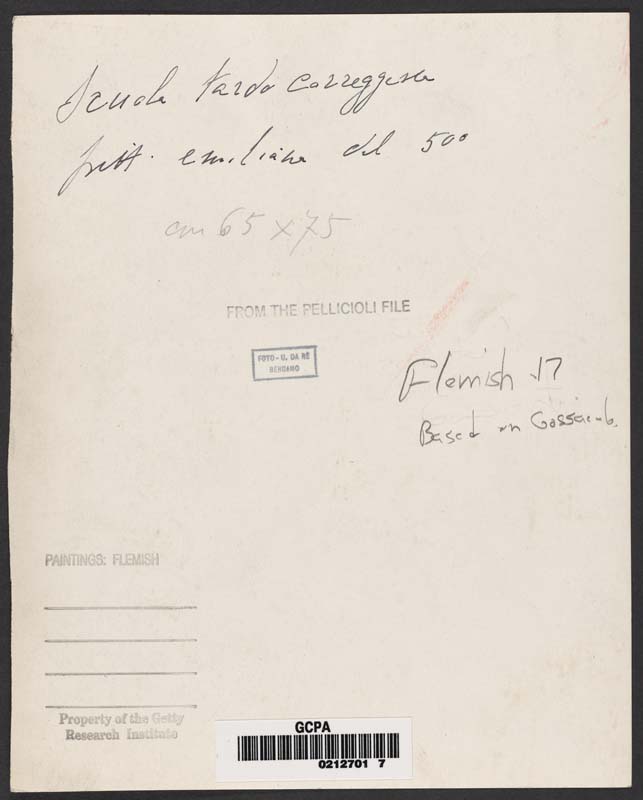 Scuola tardo correggesca
pitt. emiliana del 500
cm 65 x 75
FROM THE PELLICIOLI FILE
FOTO - U. DA RÈ
BERGAMO
Flemish 17
Based on
PAINTINGS: FLEMISH
Property of the Getty
Research Institute
GCPA
0212701 7